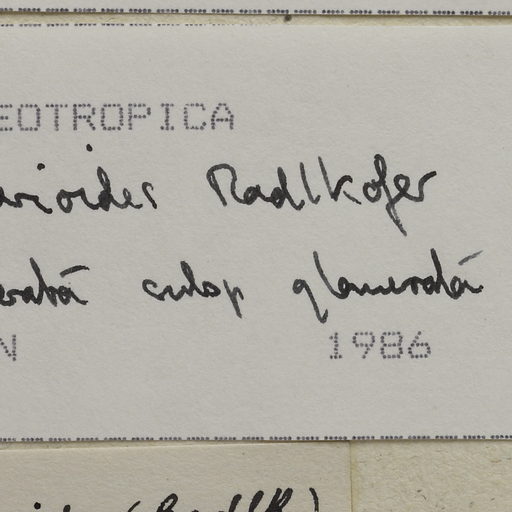 EOTROPICA
arioides Radlkofer
erata subsp glomerata
N 1986
(Radlk)